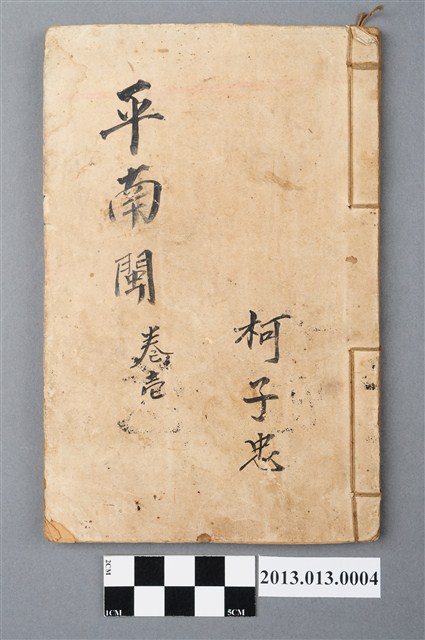 平南閩
卷壹
柯子忠
2CM
1CM
5CM
2013.013.0004